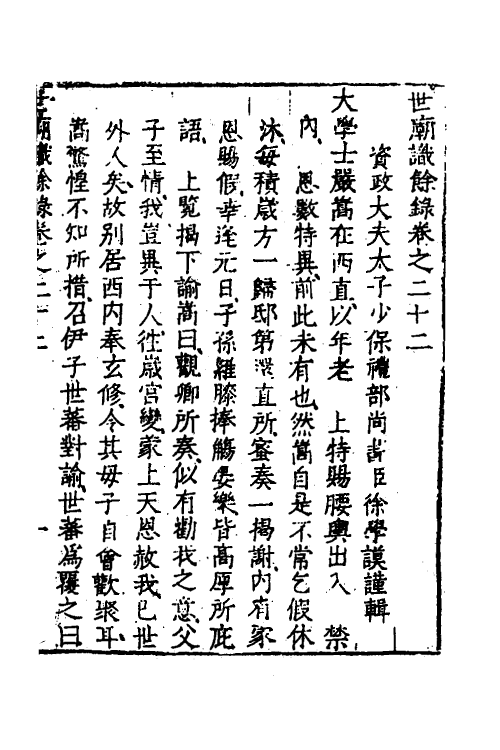 世廟識餘錄卷之二十二
資政大夫太子少保禮部尚書臣徐學謨謹輯
大學士嚴嵩在西直以年老　上特賜腰輿出入　禁
內　恩數特異前此未有也然嵩自是不常乞假休
沐每積歲方一歸邸第還直所密奏一揭謝內有家
恩賜假幸逢元日子孫羅膝捧觴晏樂皆高厚所庇
語　上覽揭下諭嵩曰觀卿所奏似有勸我之意父
子至情我豈異于人徃歲宮變蒙上天恩赦我已世
外人矣故別居西內奉玄修令其母子自會歡聚耳
嵩驚惶不知所措召伊子世蕃對諭世蕃爲覆之曰
世廟識餘錄卷之二十二　一